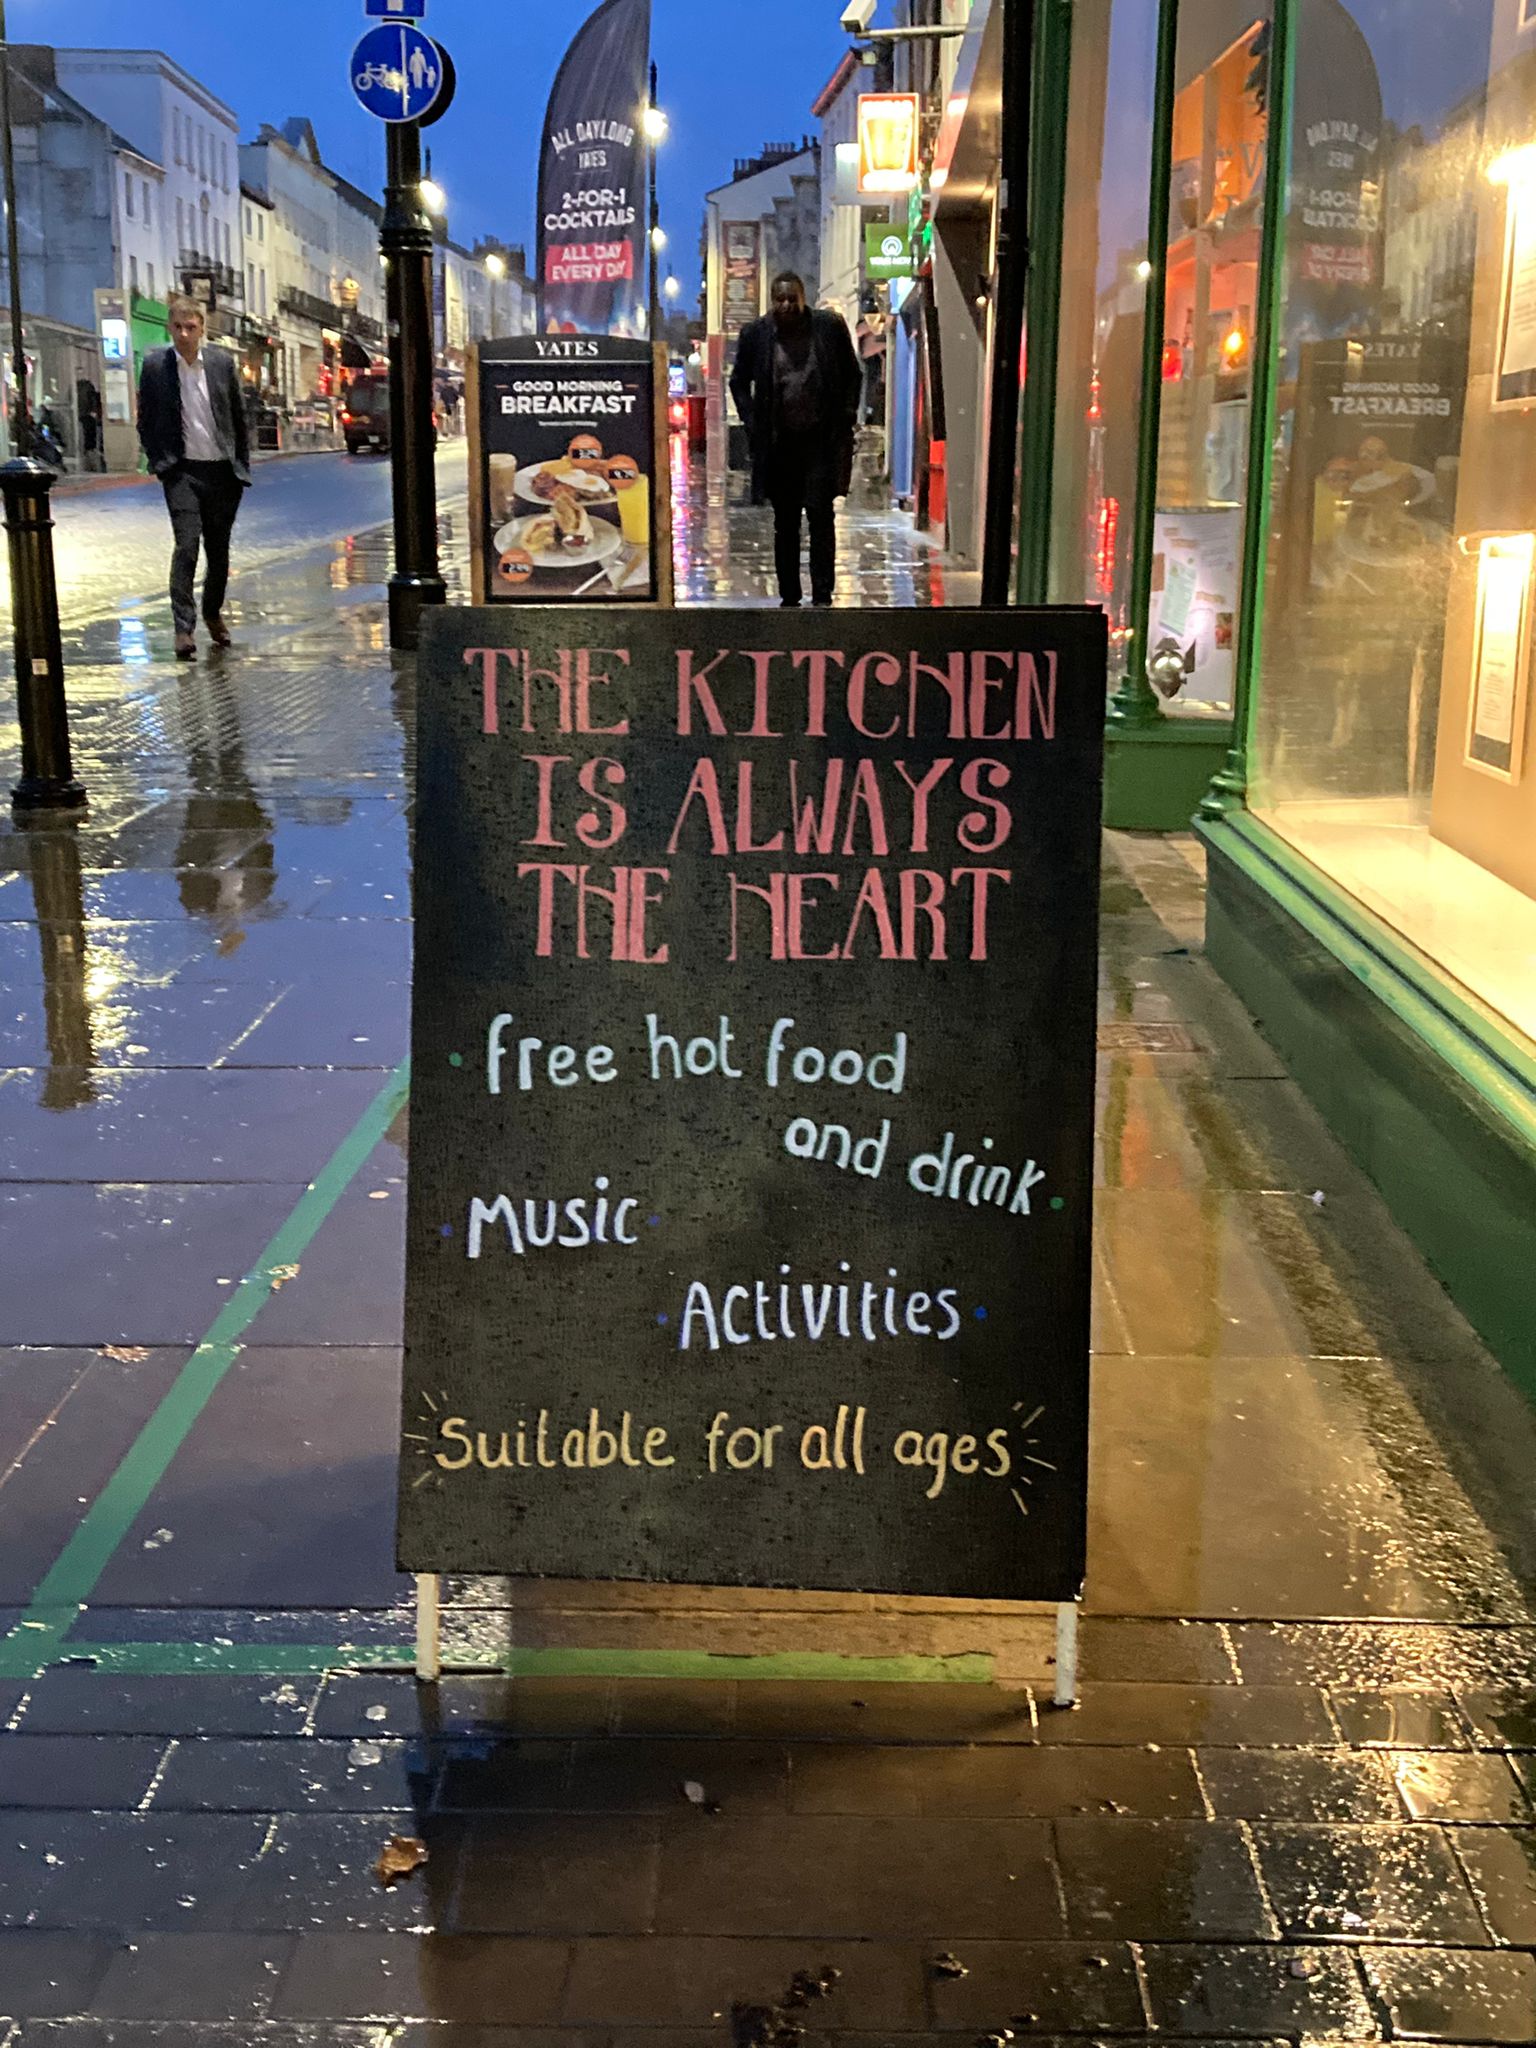 ALL DAY LONG
YATES
2-FOR-1
COCKTAILS
ALL DAY
EVERY DAY
YATES
GOOD MORNING
BREAKFAST
THE KITCHEN
IS ALWAYS
THE HEART
. free hot food
and drink.
. Music .
. Activities .
Suitable for all ages